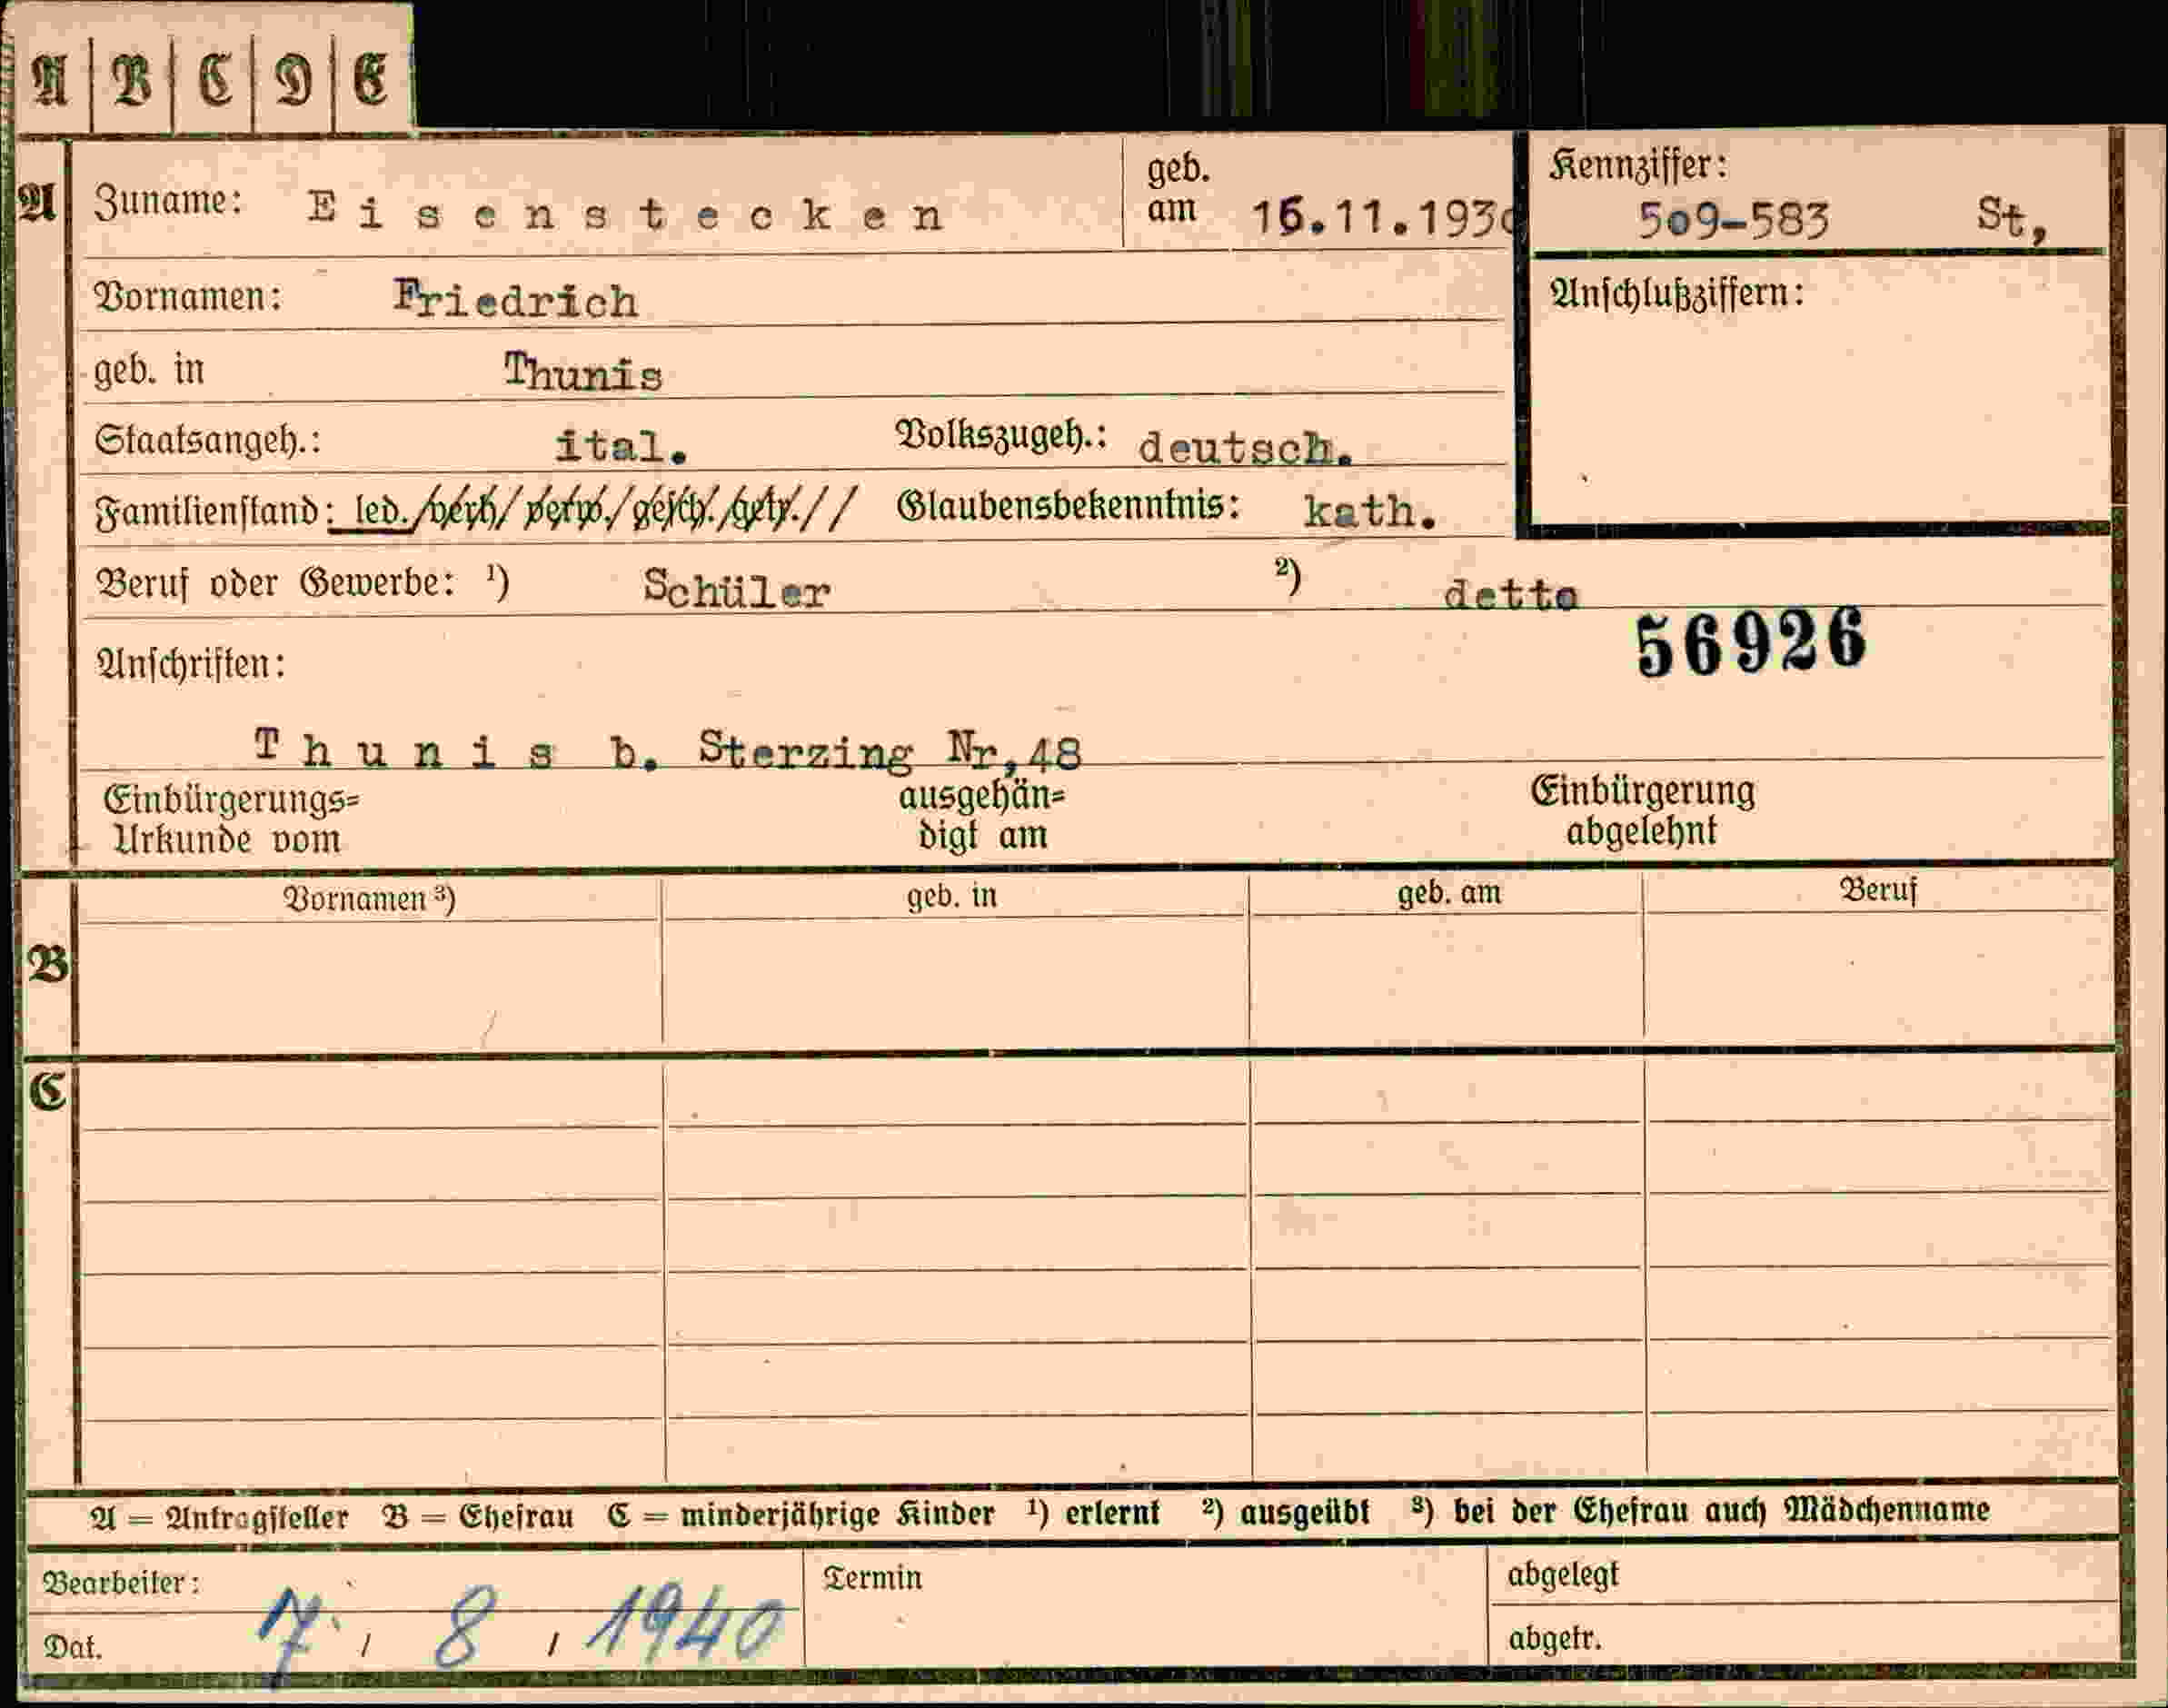 A B C D E
A Zuname: Eisenstecken geb. am 16.11.1930 Kennziffer: 509-583 St,
Vornamen: Friedrich Anschlußziffern:
geb. in Thunis
Staatsangeh.: ital. Volkszugeh.: deutsch.
Familienstand: led./verh/verw./gesch./getr.// Glaubensbekenntnis: kath.
Beruf oder Gewerbe: ¹) Schüler ²) detto
56926
Anschriften:
Thunis b. Sterzing Nr,48
Einbürgerungs= ausgehän= Einbürgerung
Urkunde vom digt am abgelehnt
Vornamen ³) geb. in geb. am Beruf
B
C
A = Antragsteller B = Ehefrau C = minderjährige Kinder ¹) erlernt ²) ausgeübt ³) bei der Ehefrau auch Mädchenname
Bearbeiter: Termin abgelegt
Dat. 7 / 8 / 1940 abgetr.